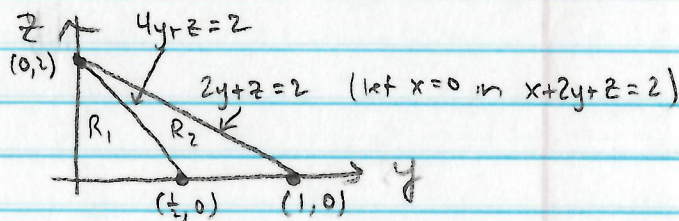 4y+z=2
z
(0,2)
2y+z=2 (let x=0 in x+2y+z=2)
R₁ R₂
y
(½,0) (1,0)